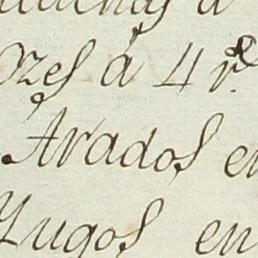 ozes á 4 r.s
Arados en
Yugos en